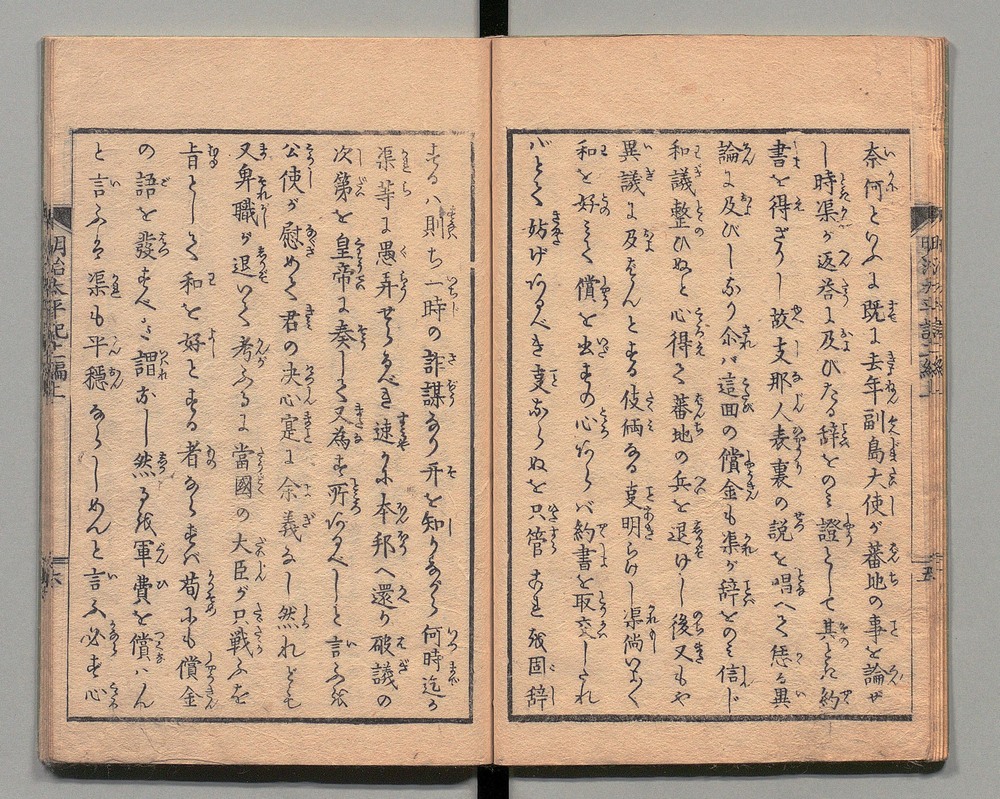 奈何といふに既に去年副島大使が蕃地の事を論ぜ
し時渠が返答に及びたる辞をのミ證として其とき約
書を得ざりし故支那人表裏の説を唱へて恁る異
論に及びしなり尒バ這回の償金も渠が辞をのミ信じ
和議整ひぬと心得て蕃地の兵を退けし後又もや
異議に及ばんとする伎倆なる叓明らけし渠尚いよく
和を好ミて償を出すの心あらバ約書を取交したれ
バとて妨げあるべき叓ならぬを只管これを固辞
するハ則ち一時の詐謀なり夫を知りながら何時迄か
渠等に愚弄せらるべき速かに本邦へ還り破議の
次第を皇帝に奏して又為す所あるべしと言ふを
公使が慰めて君の决心寔に余義なし然れども
又卑職が退いて考ふるに當國の大臣が只戦ふを
旨として和を好とする者ならずバ荀にも償金
の語を發すべき謂なし然るを軍費を償ハん
と言ふハ渠も平穏ならしめんと言ふ必ず心
明治太平記十二編上
五
明治太平記十二編上
六